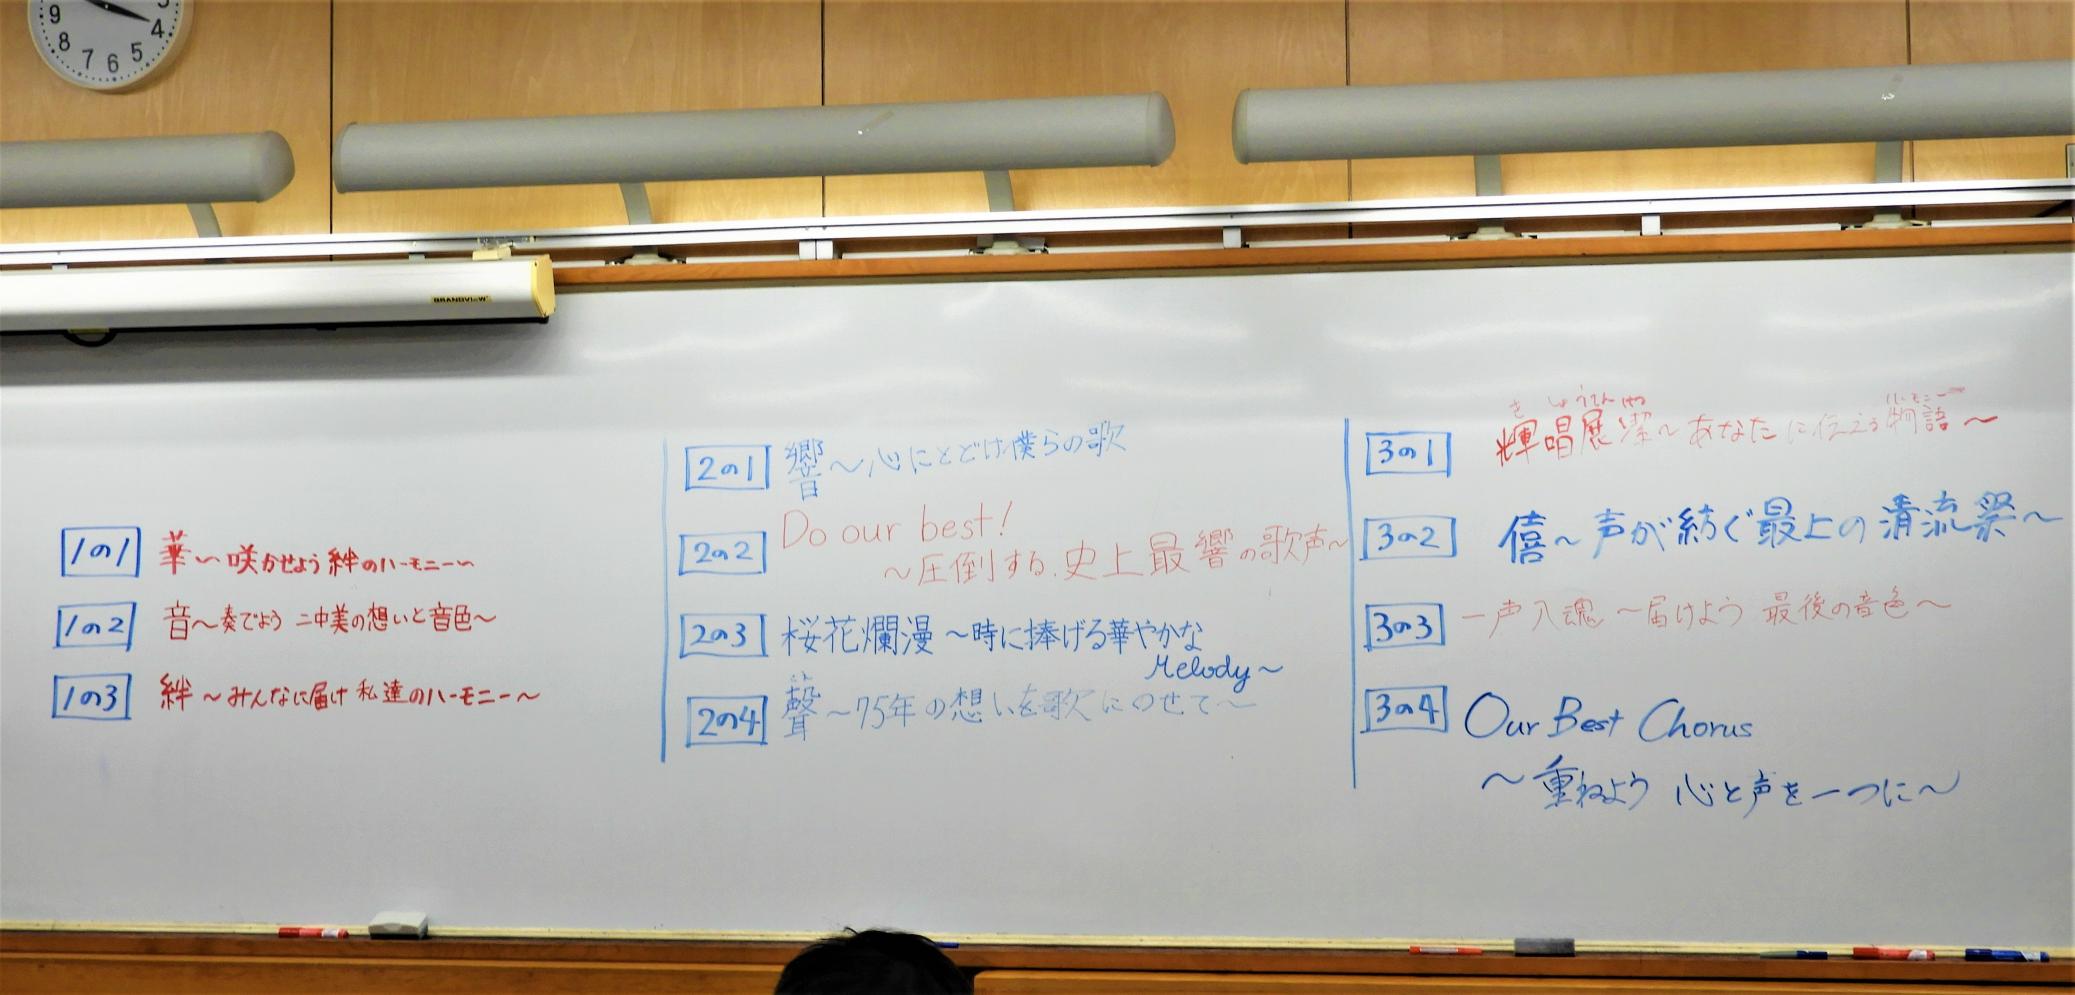 9 8 7 6 5 4
GRANDVIEW
1の1 華〜咲かせよう絆のハーモニー〜
1の2 音〜奏でよう 二中美の想いと音色〜
1の3 絆〜みんなに届け 私達のハーモニー〜
2の1 響〜心にとどけ僕らの歌
2の2 Do our best!
〜圧倒する、史上最響の歌声〜
2の3 桜花爛漫〜時に捧げる華やかな
Melody〜
2の4 聲〜75年の想いを歌にのせて〜
ハーモニー
3の1 輝唱展潔〜あなたに伝える物語〜
3の2 僖〜声が紡ぐ最上の清流祭〜
3の3 一声入魂〜届けよう 最後の音色〜
3の4 Our Best Chorus
〜重ねよう 心と声を一つに〜